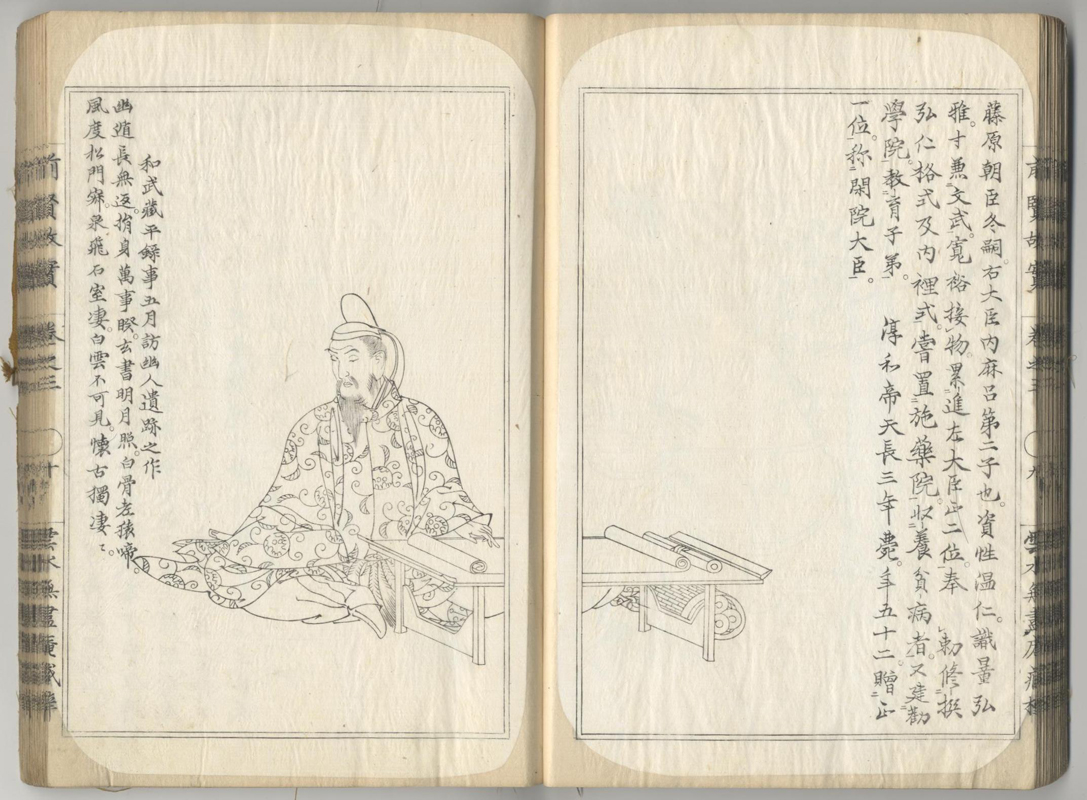 藤原朝臣冬嗣。右大臣内麻呂第二子也。資性温仁。識量弘
雅。才兼文武。寛裕接物。累進左大臣正二位。奉　勅修撰
弘仁格式及内裡式。嘗置施薬院。収養貧病者。又建勸
學院。教育子弟。　淳和帝天長三年薨。年五十二。贈正
一位。称閑院大臣。
和武藏平録事五月訪幽人遺跡之作
幽遁長無返。捐身萬事睽。玄書明月照。白骨老猿啼。
風度松門寂。泉飛石室凄。白雲不可見。懐古獨凄々。
前賢故實　卷之三　十